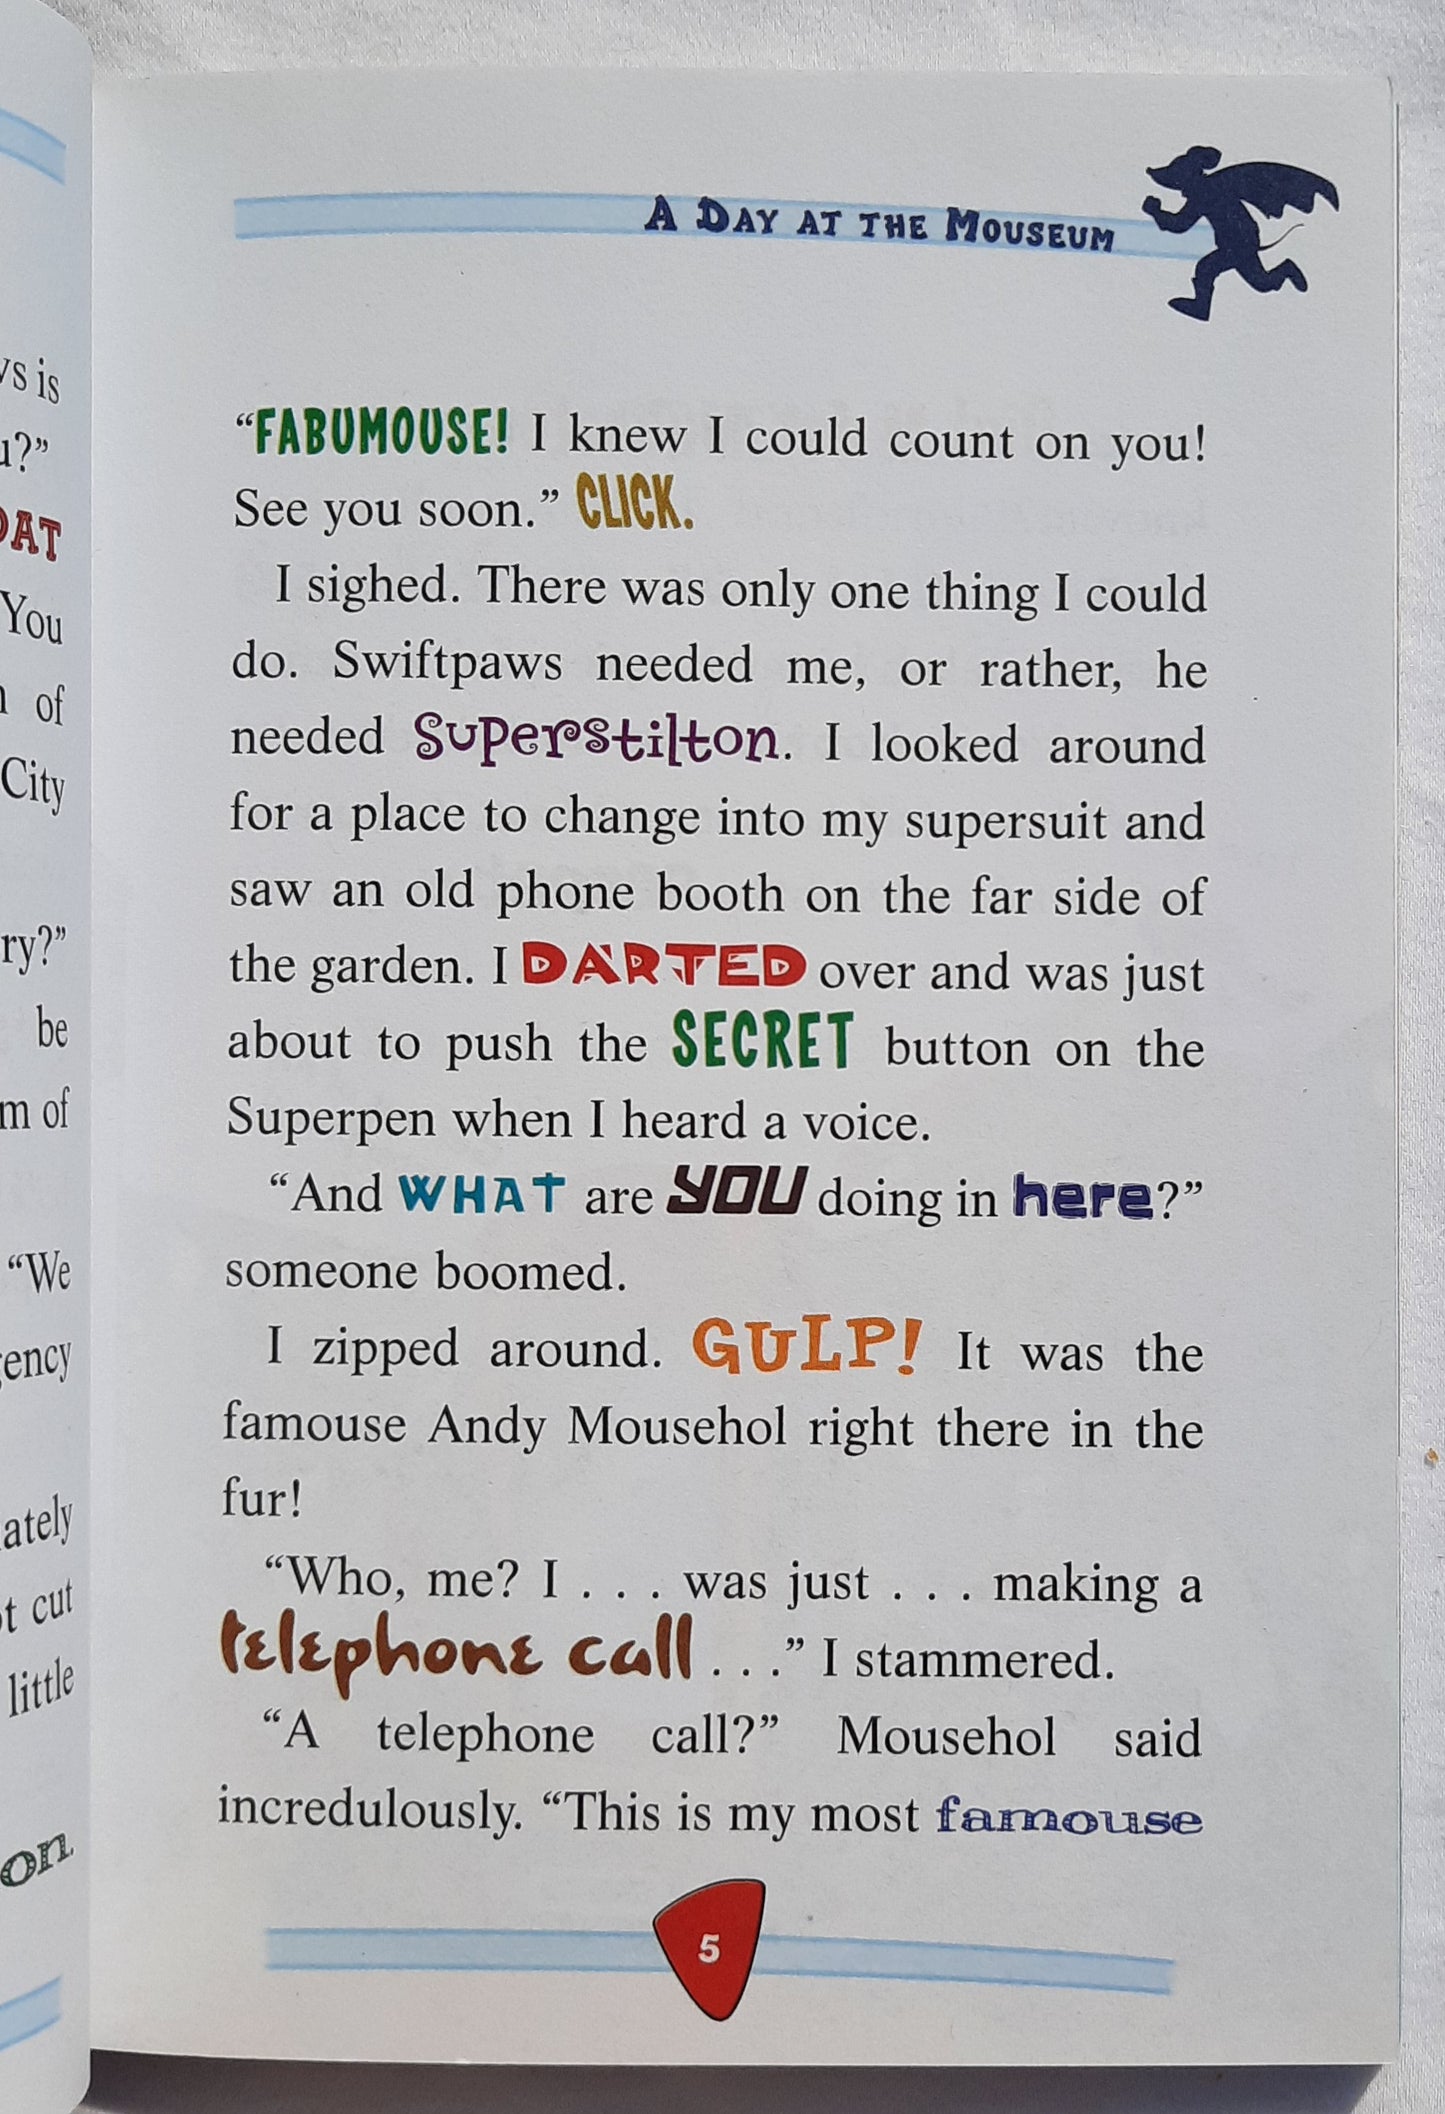 is
u?"
You
of
City
ry?"
be
m of
"We
ately
cut
little
on.
A DAY AT THE MOUSEUM
"FABUMOUSE! I knew I could count on you!
See you soon." CLICK.
I sighed. There was only one thing I could
do. Swiftpaws needed me, or rather, he
needed Superstilton. I looked around
for a place to change into my supersuit and
saw an old phone booth on the far side of
the garden. I DARTED over and was just
about to push the SECRET button on the
Superpen when I heard a voice.
"And WHAT are YOU doing in here?"
someone boomed.
I zipped around. GULP! It was the
famouse Andy Mousehol right there in the
fur!
"Who, me? I . . . was just . . . making a
telephone call . . ." I stammered.
"A telephone call?" Mousehol said
incredulously. "This is my most famouse
5